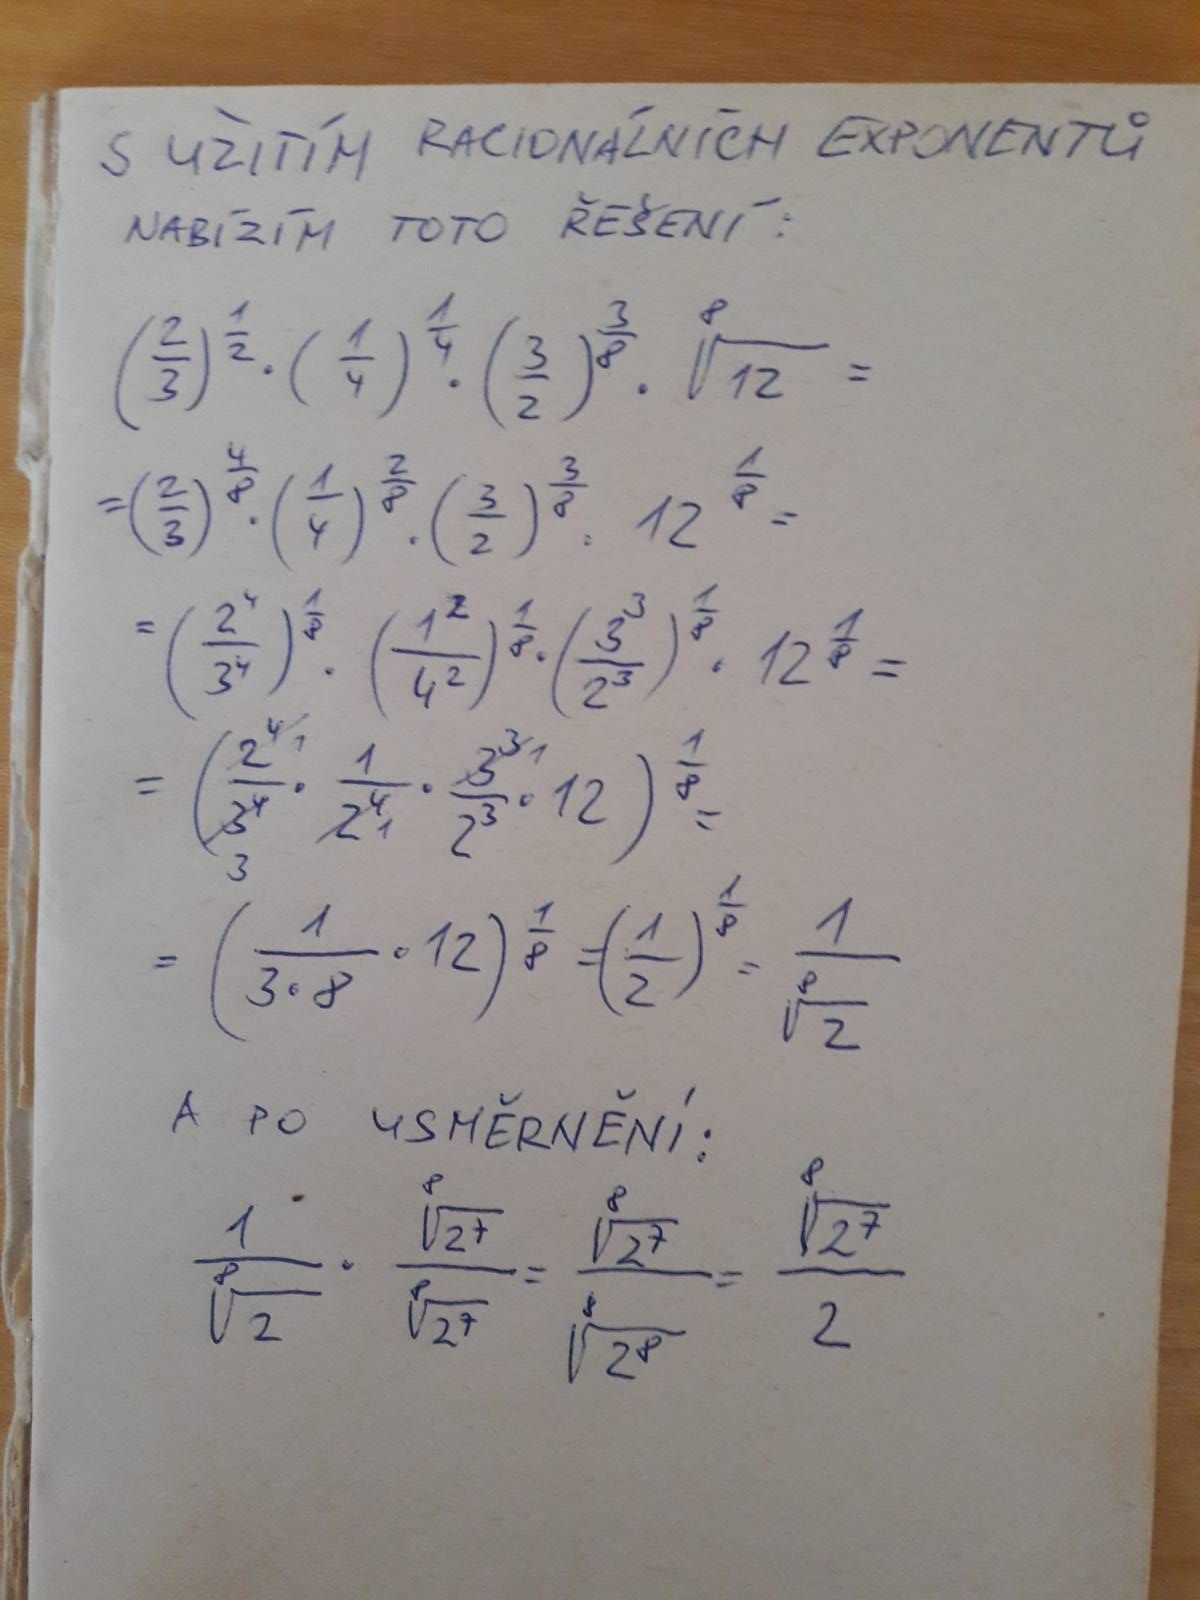 S UŽITÍM RACIONÁLNÍCH EXPONENTŮ
NABÍZÍM TOTO ŘEŠENÍ:
(2/3)^(1/2) · (1/4)^(1/4) · (3/2)^(3/8) · ⁸√12 =
= (2/3)^(4/8) · (1/4)^(2/8) · (3/2)^(3/8) · 12^(1/8) =
= (2⁴/3⁴)^(1/8) · (1²/4²)^(1/8) · (3³/2³)^(1/8) · 12^(1/8) =
= (2⁴/3⁴ · 1/2⁴ · 3³/2³ · 12)^(1/8) =
= (1/(3·8) · 12)^(1/8) = (1/2)^(1/8) = 1/⁸√2
A PO USMĚRNĚNÍ:
1/⁸√2 · ⁸√2⁷/⁸√2⁷ = ⁸√2⁷/⁸√2⁸ = ⁸√2⁷/2